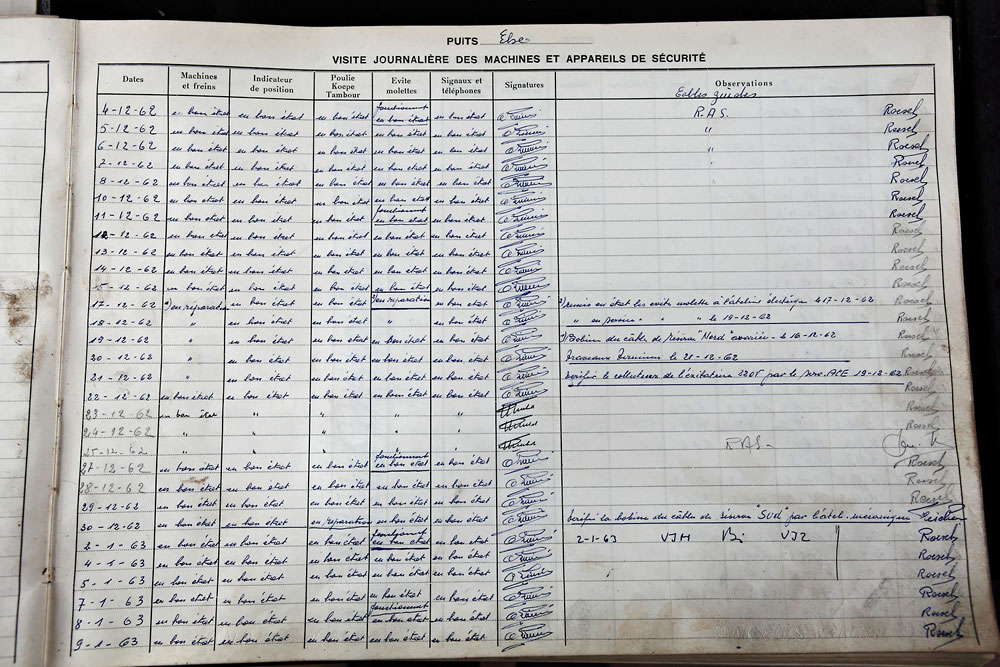 PUITS Else
VISITE JOURNALIÈRE DES MACHINES ET APPAREILS DE SÉCURITÉ
Dates Machines et freins Indicateur de position Poulie Koepe Tambour Evite molettes Signaux et téléphones Signatures Observations
fonctionnent
4-12-62 en bon état en bon état en bon état en bon état en bon état R.A.S. Roesch
5-12-62 en bon état en bon état en bon état en bon état en bon état " Roesch
6-12-62 en bon état en bon état en bon état en bon état en bon état " Roesch
7-12-62 en bon état en bon état en bon état en bon état en bon état " Roesch
8-12-62 en bon état en bon état en bon état en bon état en bon état " Roesch
10-12-62 en bon état en bon état en bon état en bon état en bon état Roesch
fonctionnent
11-12-62 en bon état en bon état en bon état en bon état en bon état Roesch
12-12-62 en bon état en bon état en bon état en bon état en bon état Roesch
13-12-62 en bon état en bon état en bon état en bon état en bon état Roesch
14-12-62 en bon état en bon état en bon état en bon état en bon état Roesch
15-12-62 en bon état en bon état en bon état en bon état en bon état Roesch
17-12-62 en réparation en bon état en bon état en réparation en bon état remis en état les evite molette à l'atelier électrique 17-12-62 Roesch
18-12-62 " en bon état en bon état " en bon état " en service " " le 19-12-62 Roesch
19-12-62 " en bon état en bon état en bon état en bon état Bobine du câble de "Nord" avariée le 16-12-62 Roesch
20-12-62 " en bon état en bon état en bon état en bon état travaux terminés le 21-12-62 Roesch
21-12-62 " en bon état en bon état en bon état en bon état Vérifié le collecteur de l'excitatrice par le 19-12-62 Roesch
22-12-62 en bon état en bon état en bon état en bon état en bon état Roesch
23-12-62 en bon état " " " " Roesch
24-12-62 " " " " " Roesch
25-12-62 " " " " " R.A.S.
fonctionnent
27-12-62 en bon état en bon état en bon état en bon état en bon état Roesch
28-12-62 en bon état en bon état en bon état en bon état en bon état Roesch
29-12-62 en bon état en bon état en bon état en bon état en bon état Roesch
30-12-62 en bon état en bon état en réparation en bon état en bon état Vérifié la bobine du câble de "SUd" par l'atel. mécanique
fonctionnent
2-1-63 en bon état en bon état en bon état en bon état en bon état 2-1-63 VJH VJ2 Roesch
4-1-63 en bon état en bon état en bon état en bon état en bon état Roesch
5-1-63 en bon état en bon état en bon état en bon état en bon état Roesch
7-1-63 en bon état en bon état en bon état en bon état en bon état Roesch
fonctionnent
8-1-63 en bon état en bon état en bon état en bon état en bon état Roesch
9-1-63 en bon état en bon état en bon état en bon état en bon état Roesch